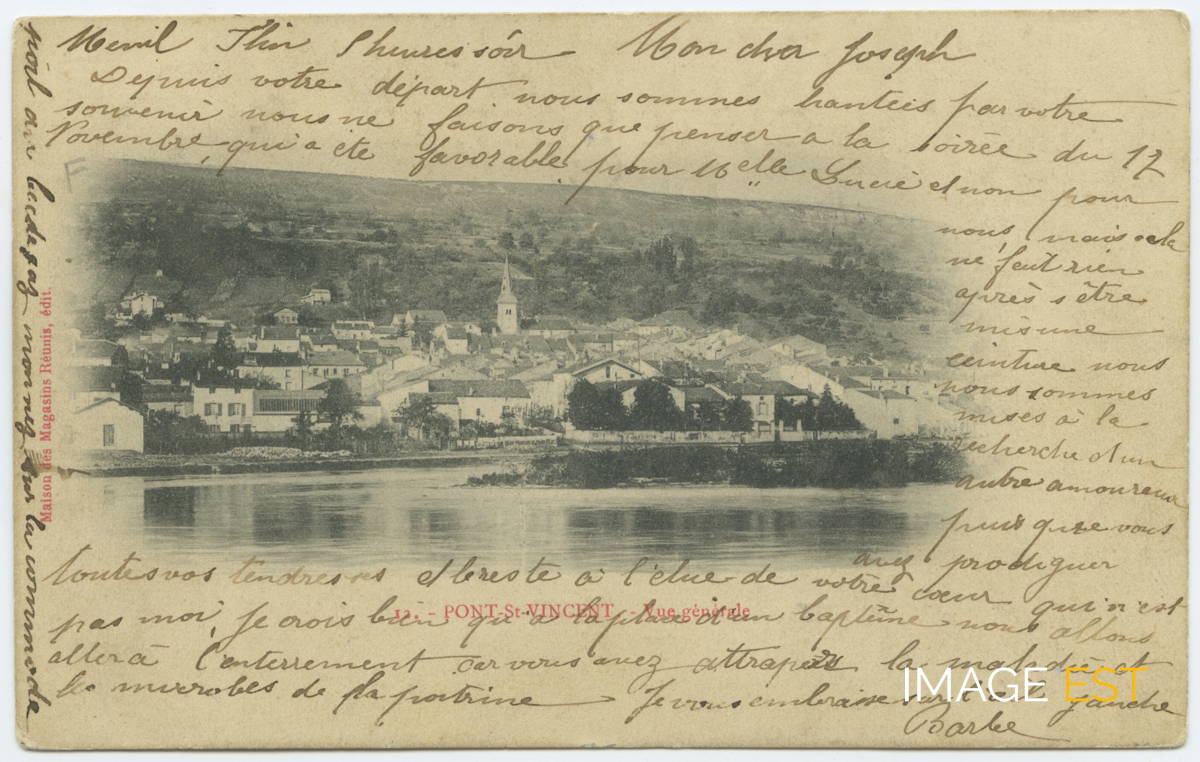 Menil Flin 8 heures soir Mon cher Joseph
Depuis votre départ nous sommes hantées par votre
souvenir nous ne faisons que penser a la soirée du 12
Novembre qui a été favorable pour Melle Lucie et non pour
nous, mais cela
ne fait rien
après s'être
mis une
ceinture nous
nous sommes
mises à la
recherche d'un
autre amoureux
puis que vous
avez prodiguer
toutes vos tendresses et le reste à l'élue de votre cœur qui n'est
pas moi, je crois bien qu'a la place d'un baptême nous allons
aller à l'enterrement car vous avez attraper la maladie et
les microbes de la poitrine Je vous embrasse sur l'œil gauche
Barbe
mon nez sur la commode
Maison des Magasins Réunis, édit.
12. - PONT-St-VINCENT. - Vue générale
F
IMAGE EST